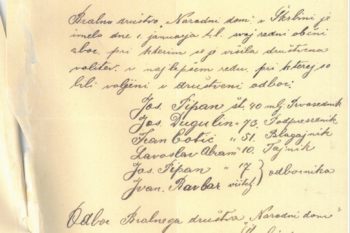 Bralno društvo „Narodni dom" v Škrbini je
imelo dne 1. januarja t.l. svoj redni občni
zbor, pri kterem se je vršila društvena
volitev, v najlepšem redu, pri kterej so
bili voljeni v društveni odbor:
Jos. Pipan št. 90 mlj. Prvosednik
Jos. Dugulin „ 73, Podpredsednik
Ivan Cotič „ 51, Blagajnik
Lavoslav Abram 10, Tajnik
Jos. Pipan „ 17 } odbornika
Ivan Bavbar
Odbor Bralnega društva „Narodni dom"